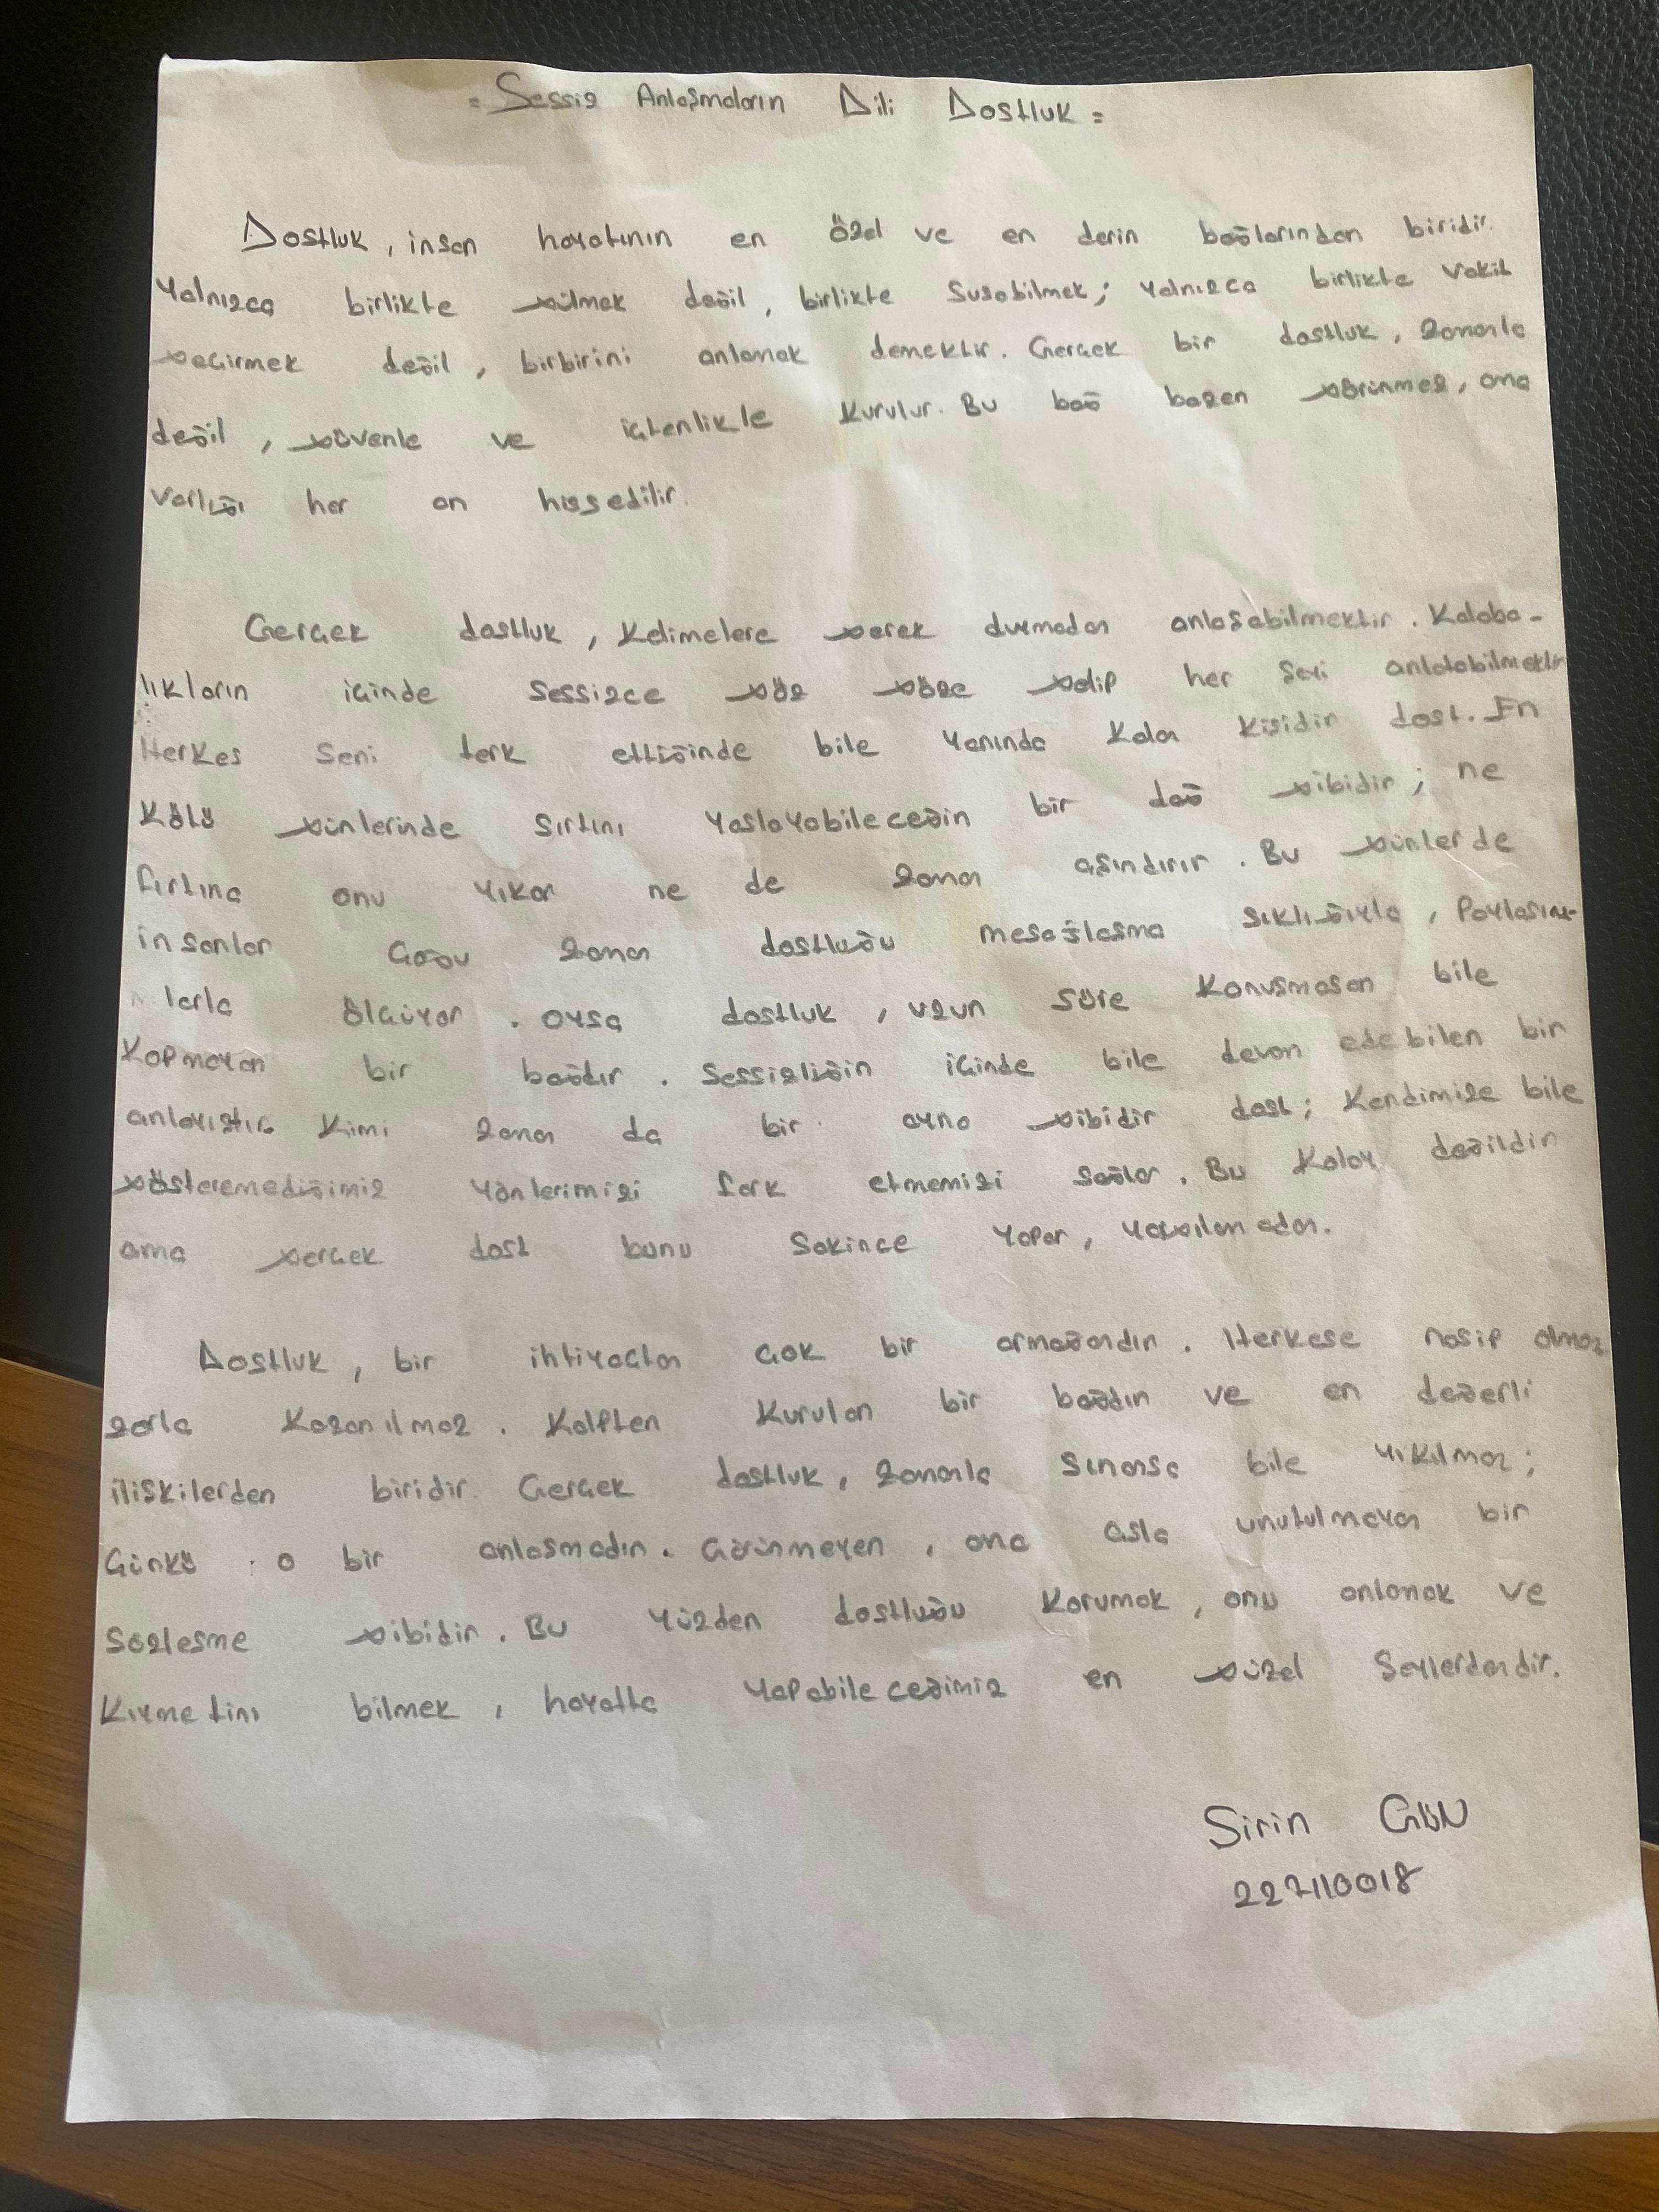 = Sessiz Anlaşmaların Dili Dostluk =
Dostluk, insan hayatının en özel ve en derin bağlarından biridir.
Yalnızca birlikte gülmek değil, birlikte susabilmek; yalnızca birlikte vakit
geçirmek değil, birbirini anlamak demektir. Gerçek bir dostluk, zamanla
değil, güvenle ve içtenlikle kurulur. Bu bağ bazen görünmez, ama
varlığı her an hissedilir.
Gerçek dostluk, kelimelere gerek duymadan anlaşabilmektir. Kalaba-
lıkların içinde sessizce göz göze gelip her şeyi anlatabilmektir
Herkes seni terk ettiğinde bile yanında kalan kişidir dost. En
kötü günlerinde sırtını yaslayabileceğin bir dağ gibidir; ne
fırtına onu yıkar ne de zaman aşındırır. Bu günlerde
insanlar çoğu zaman dostluğu mesajlaşma sıklığıyla, paylaşım-
larla ölçüyor. Oysa dostluk, uzun süre konuşmasan bile
kopmayan bir bağdır. Sessizliğin içinde bile devam edebilen bir
anlayıştır. Kimi zaman da bir ayna gibidir dost; kendimize bile
gösteremediğimiz yönlerimizi fark etmemizi sağlar. Bu kolay değildir
ama gerçek dost bunu sakince yapar, yargılamadan.
Dostluk, bir ihtiyaçtan çok bir armağandır. Herkese nasip olmaz
zorla kazanılmaz. Kalpten kurulan bir bağdır ve en değerli
ilişkilerden biridir. Gerçek dostluk, zamanla sınansa bile yıkılmaz;
Çünkü o bir anlaşmadır. Görünmeyen, ama asla unutulmayan bir
sözleşme gibidir. Bu yüzden dostluğu korumak, onu anlamak ve
kıymetini bilmek, hayatta yapabileceğimiz en güzel şeylerdendir.
Şirin GÜN
227110018